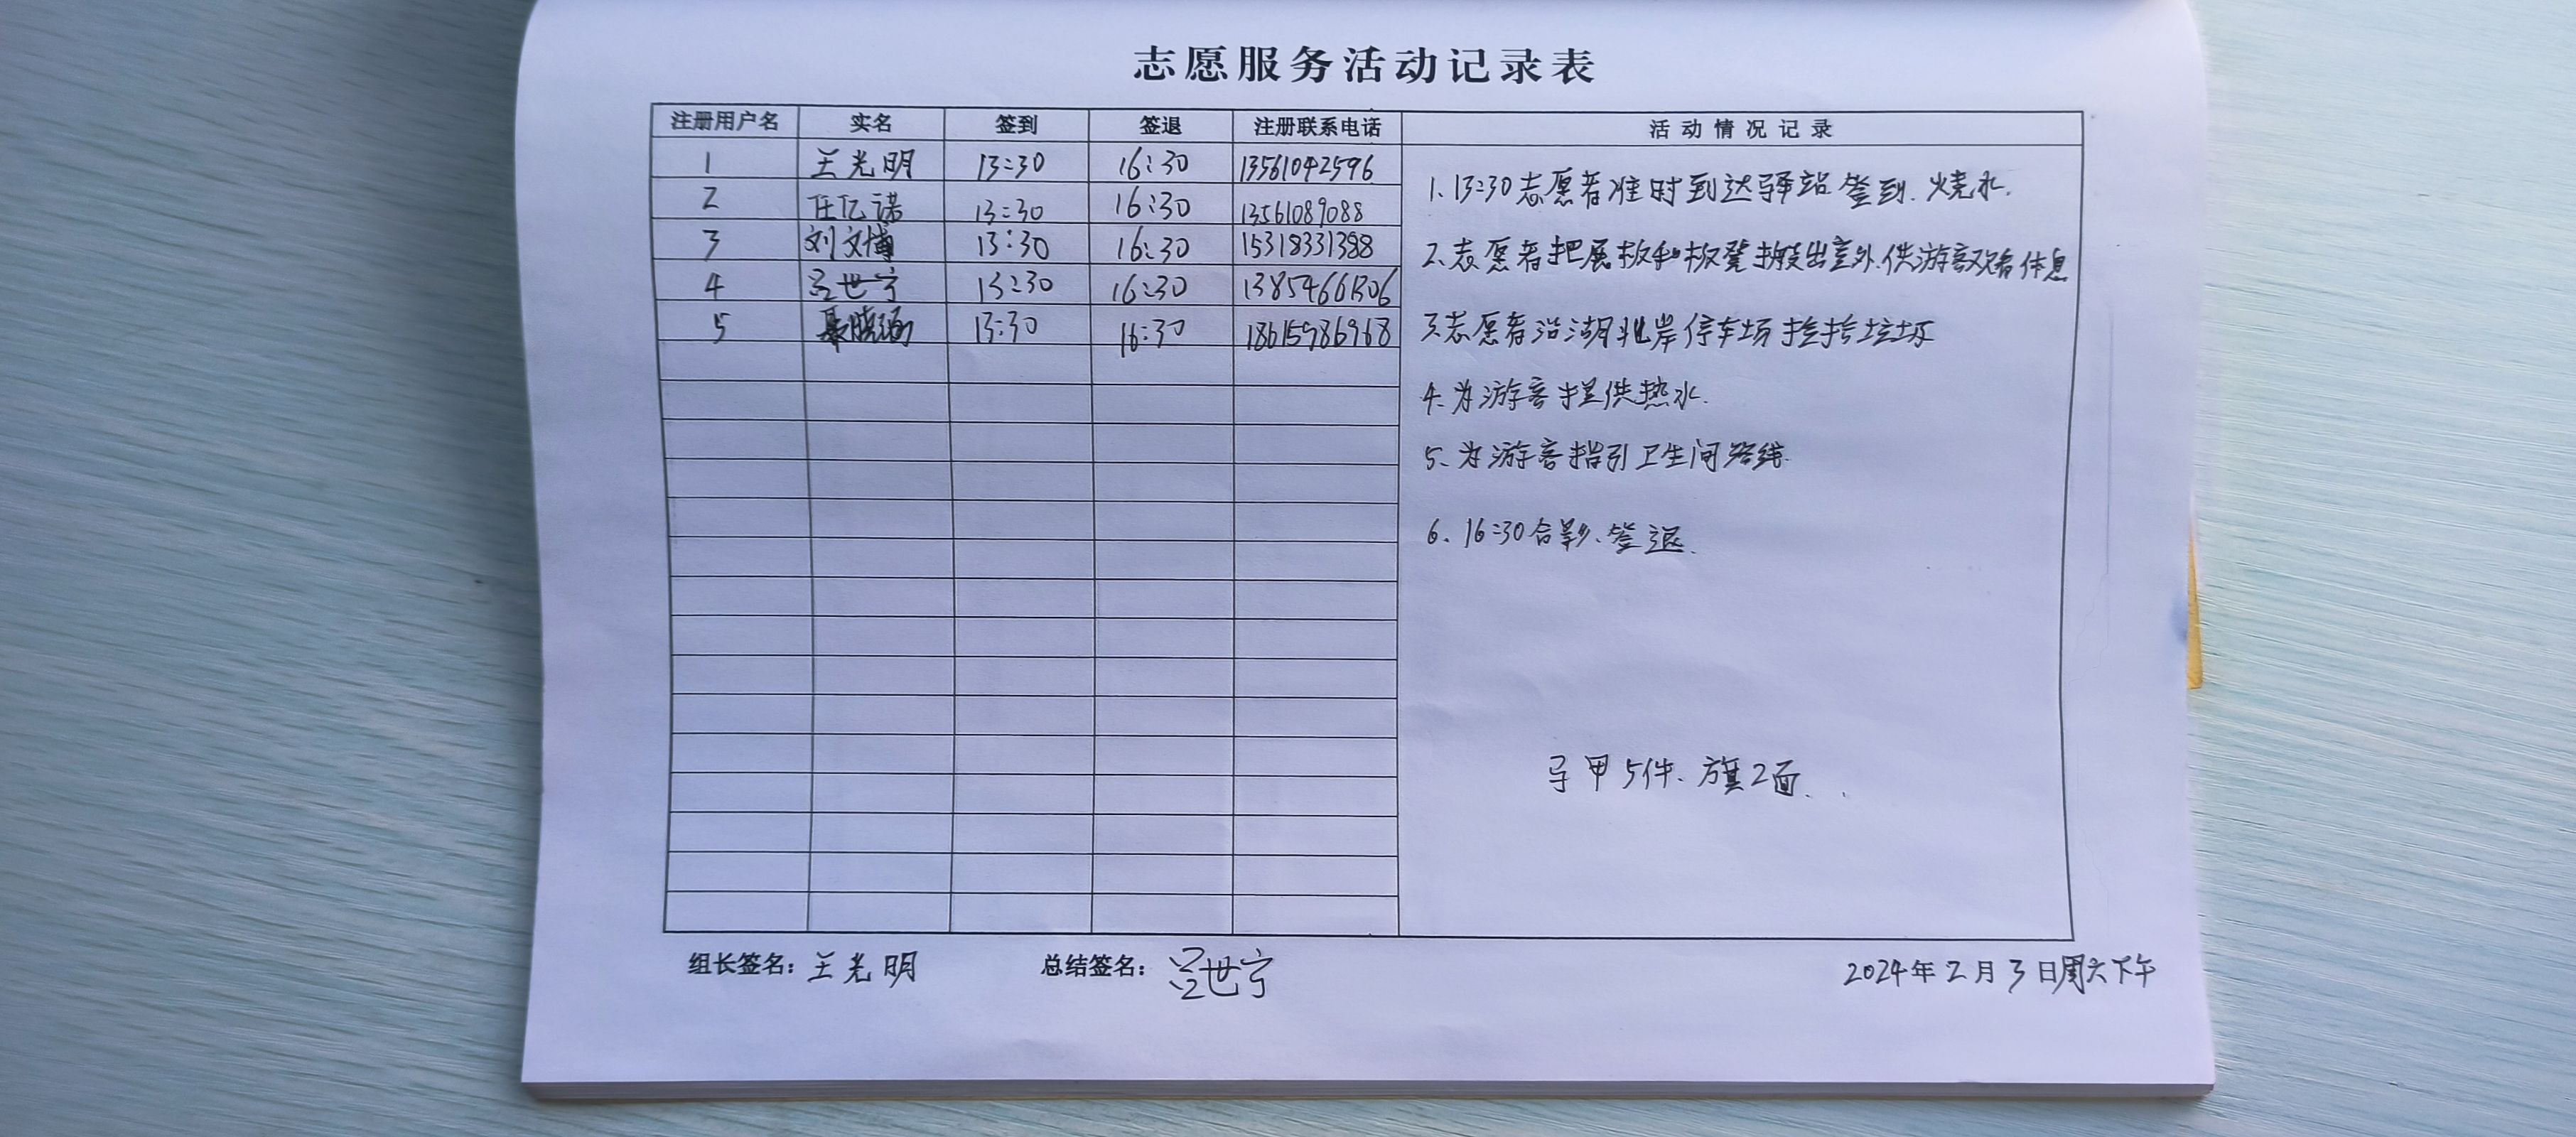 志愿服务活动记录表
注册用户名 实名 签到 签退 注册联系电话 活动情况记录
1 王光明 13:30 16:30 13561042596
2 任亿诺 13:30 16:30 13561089088
3 刘文博 13:30 16:30 15318331388
4 吕世宁 13:30 16:30 13854661306
5 晓涵 13:30 16:30 18615986968
1、13:30志愿者准时到达驿站签到、烧水.
2、志愿者把展板和板凳搬出室外、供游客观看休息
3、志愿者沿湖北岸停车场捡拾垃圾
4、为游客提供热水.
5、为游客指引卫生间路线.
6、16:30合影、签退.
马甲5件、旗2面.
组长签名：王光明 总结签名：吕世宁 2024年2月3日周六下午